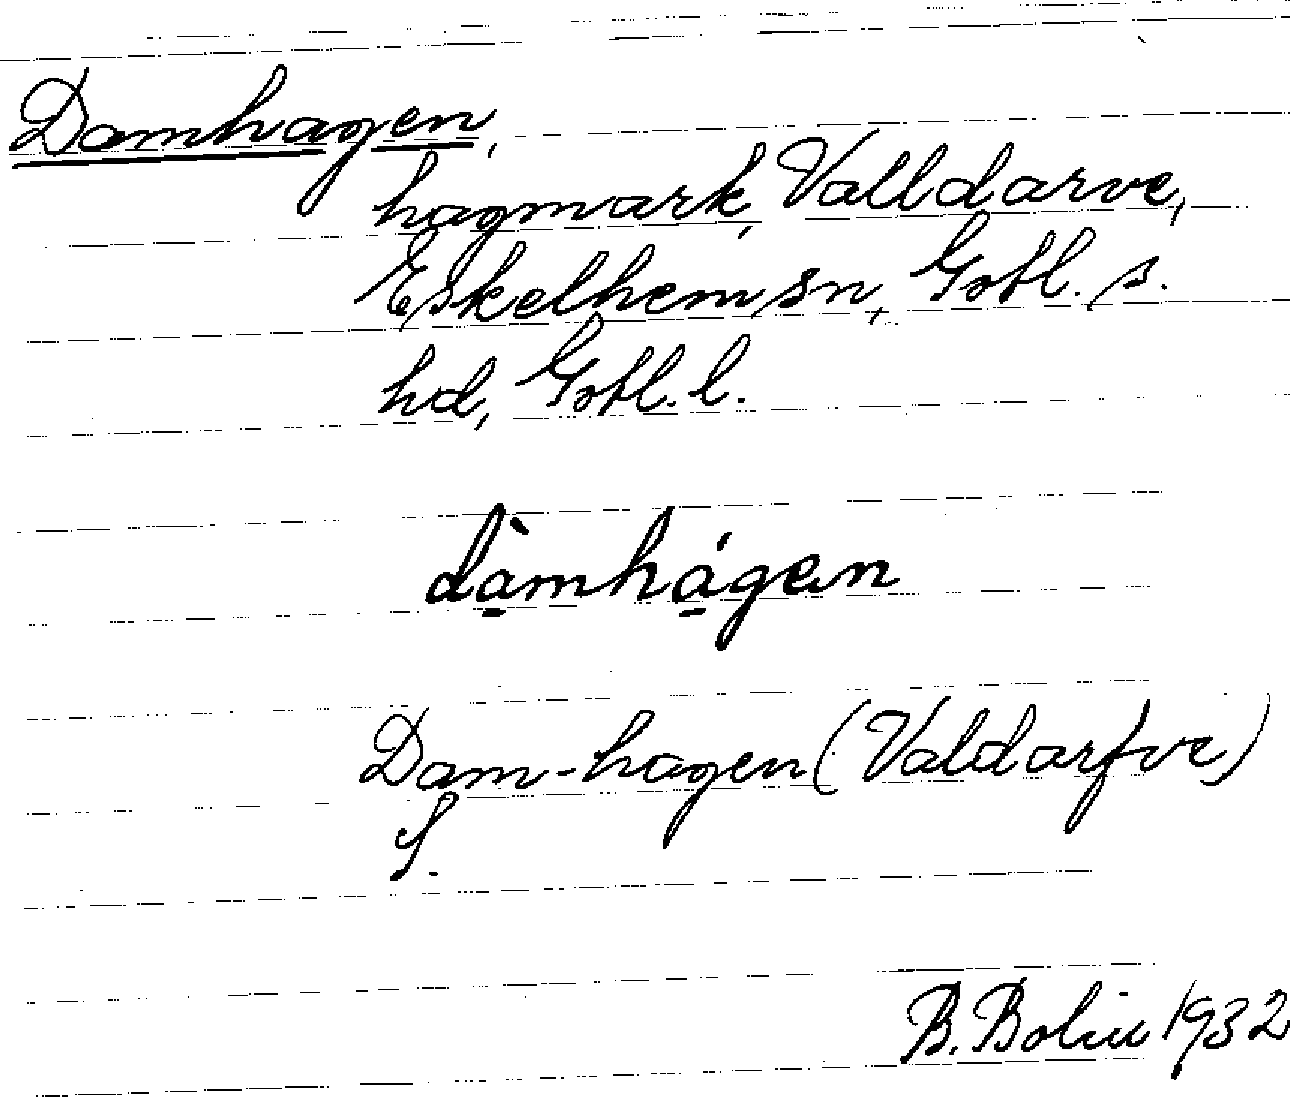 Damhagen,
hagmark, Valldarve,
Eskelhem sn, Gotl. s.
hd, Gotl. l.
dạ̀mhạ́gen
Dam-hagen (Valdarfve)
S.
B. Bolin 1932